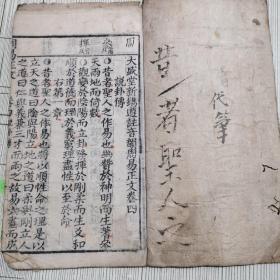 大成堂新鐫遵註音韻周易正文卷四
說卦傳
昔者聖人之作易也幽贊於神明而生蓍參
天兩地而倚數
觀變於陰陽而立卦發揮於剛柔而生爻和
順於道德而理於義窮理盡性以至於命
右第一章
昔者聖人之作易也將以順性命之理是以
立天之道曰陰與陽立地之道曰柔與剛立人
之道曰仁與義兼三才而兩之故易六畫而成
代筆
昔者聖人